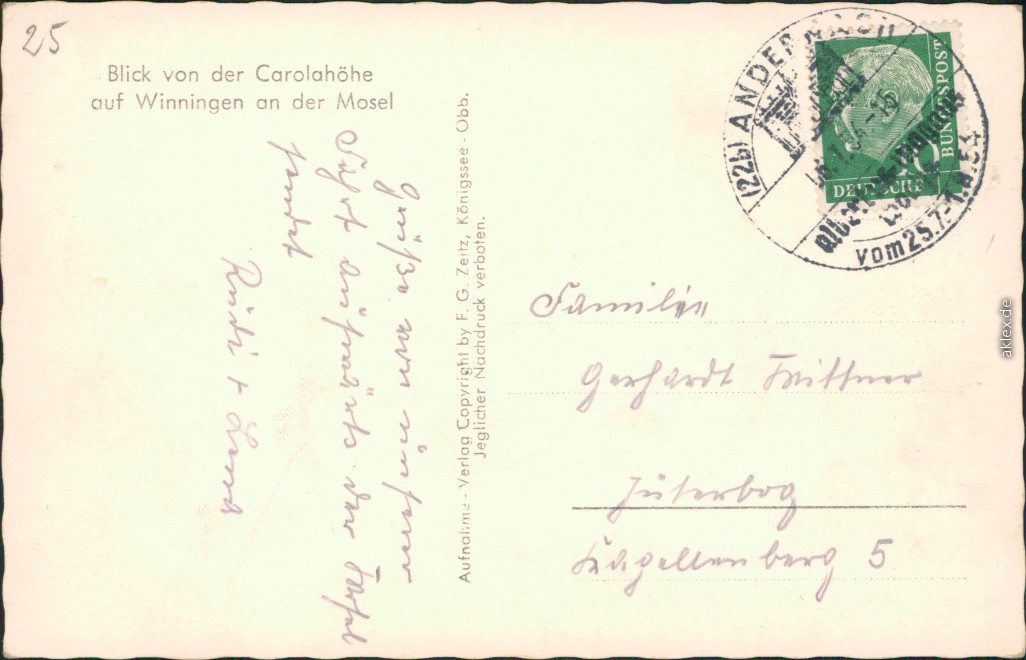 25
Blick von der Carolahöhe
auf Winningen an der Mosel
Grüße von unserer
Fahrt aufwärts der
sendet
Rudi +
Aufnahme - Verlag Copyright by F. G. Zeitz, Königssee - Obb.
Jeglicher Nachdruck verboten.
(22b) ANDERNACH
-15
vom 25.7.-1.8.54
DEUTSCHE
BUNDESPOST
10
Familie
Gerhardt Wittner
Jüterbog
Kapellenberg 5
aklex.de